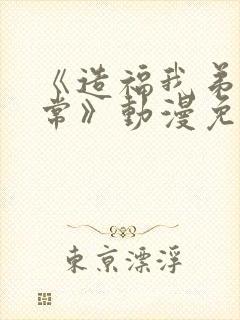 《造福我弟
常》動漫免
東京漂浮